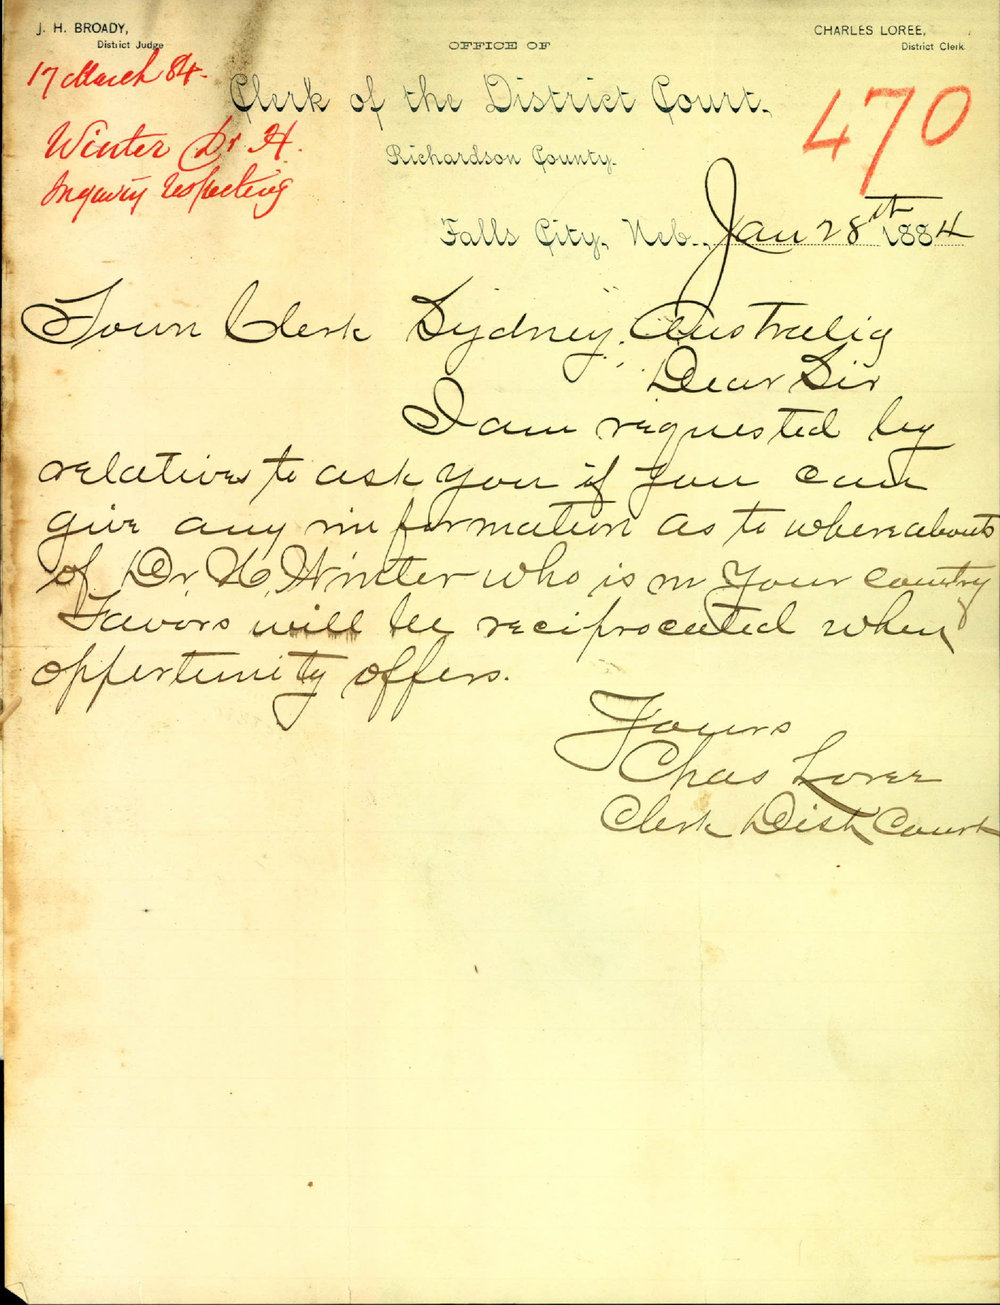 J. H. BROADY,
District Judge
CHARLES LOREE,
District Clerk
OFFICE OF
Clerk of the District Court,
Richardson County.
17 March 84.
Winter Dr H.
Inquiry respecting
470
Falls City, Neb., Jan 28th 1884
Town Clerk Sydney, Australia
Dear Sir
I am requested by
relatives to ask you if you can
give any information as to whereabouts
of Dr. H. Winter who is in your country
Favors will be reciprocated when
oppertunity offers.
Yours
Chas Loree
Clerk Dist Court